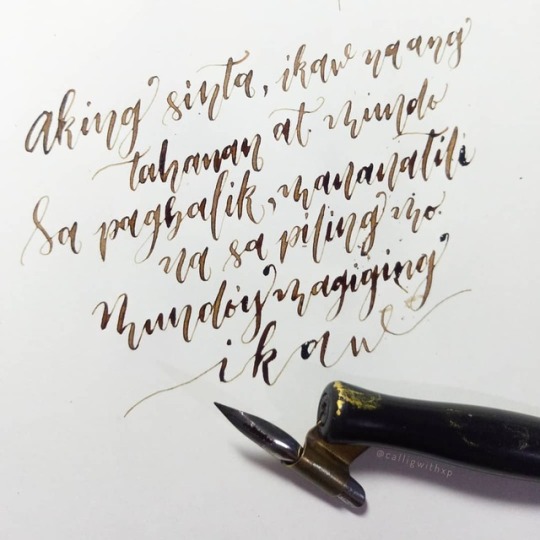 Aking sinta, ikaw na ang
tahanan at mundo
Sa pagbalik, mananatili
na sa piling mo.
Mundo'y magiging
ikaw
@calligwithxp